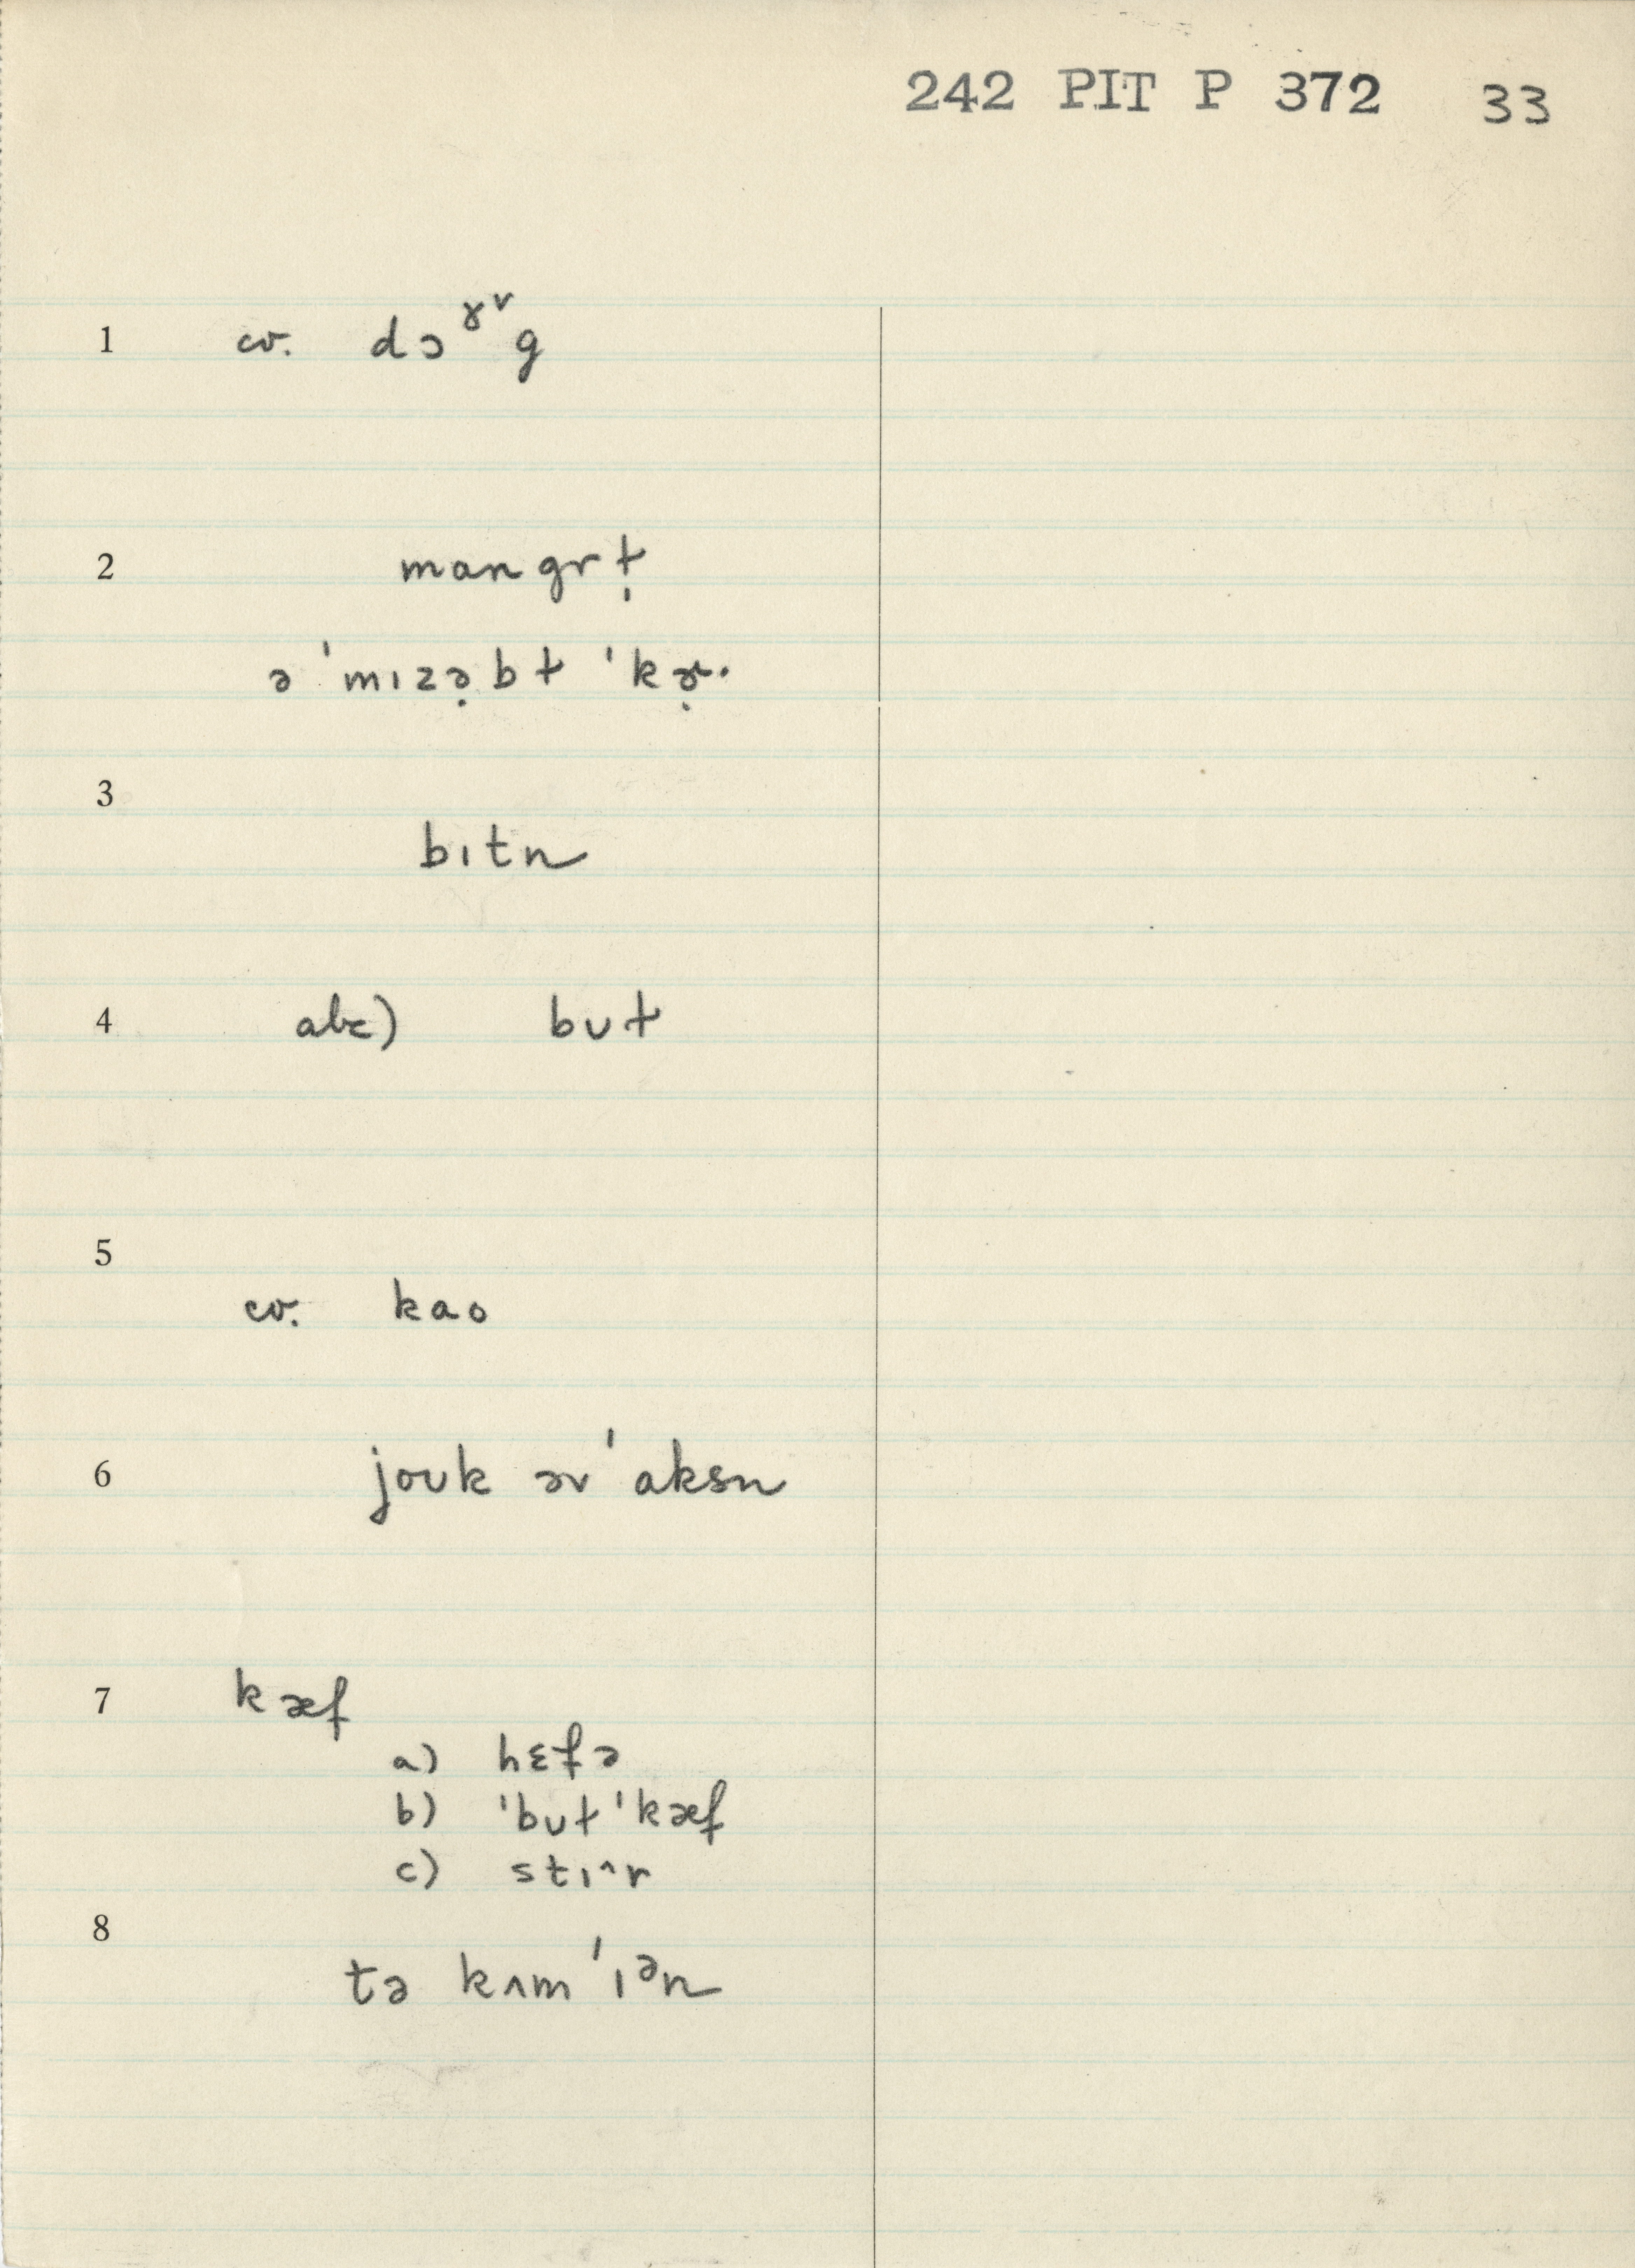 242 PIT P 372 33
1 cv. dɔˠ˅g
2 mangrṭ
ə ˈmɪzə̣bt ˈkɚ̣·
3 bɪtn
4 abc) bʊt
5 cv. kao
6 joʊk əv ˈaksn
7 kæf
a) hɛfə
b) ˈbʊt ˈkæf
c) stɪ^r
8 tə kʌm ˈɪᵊn